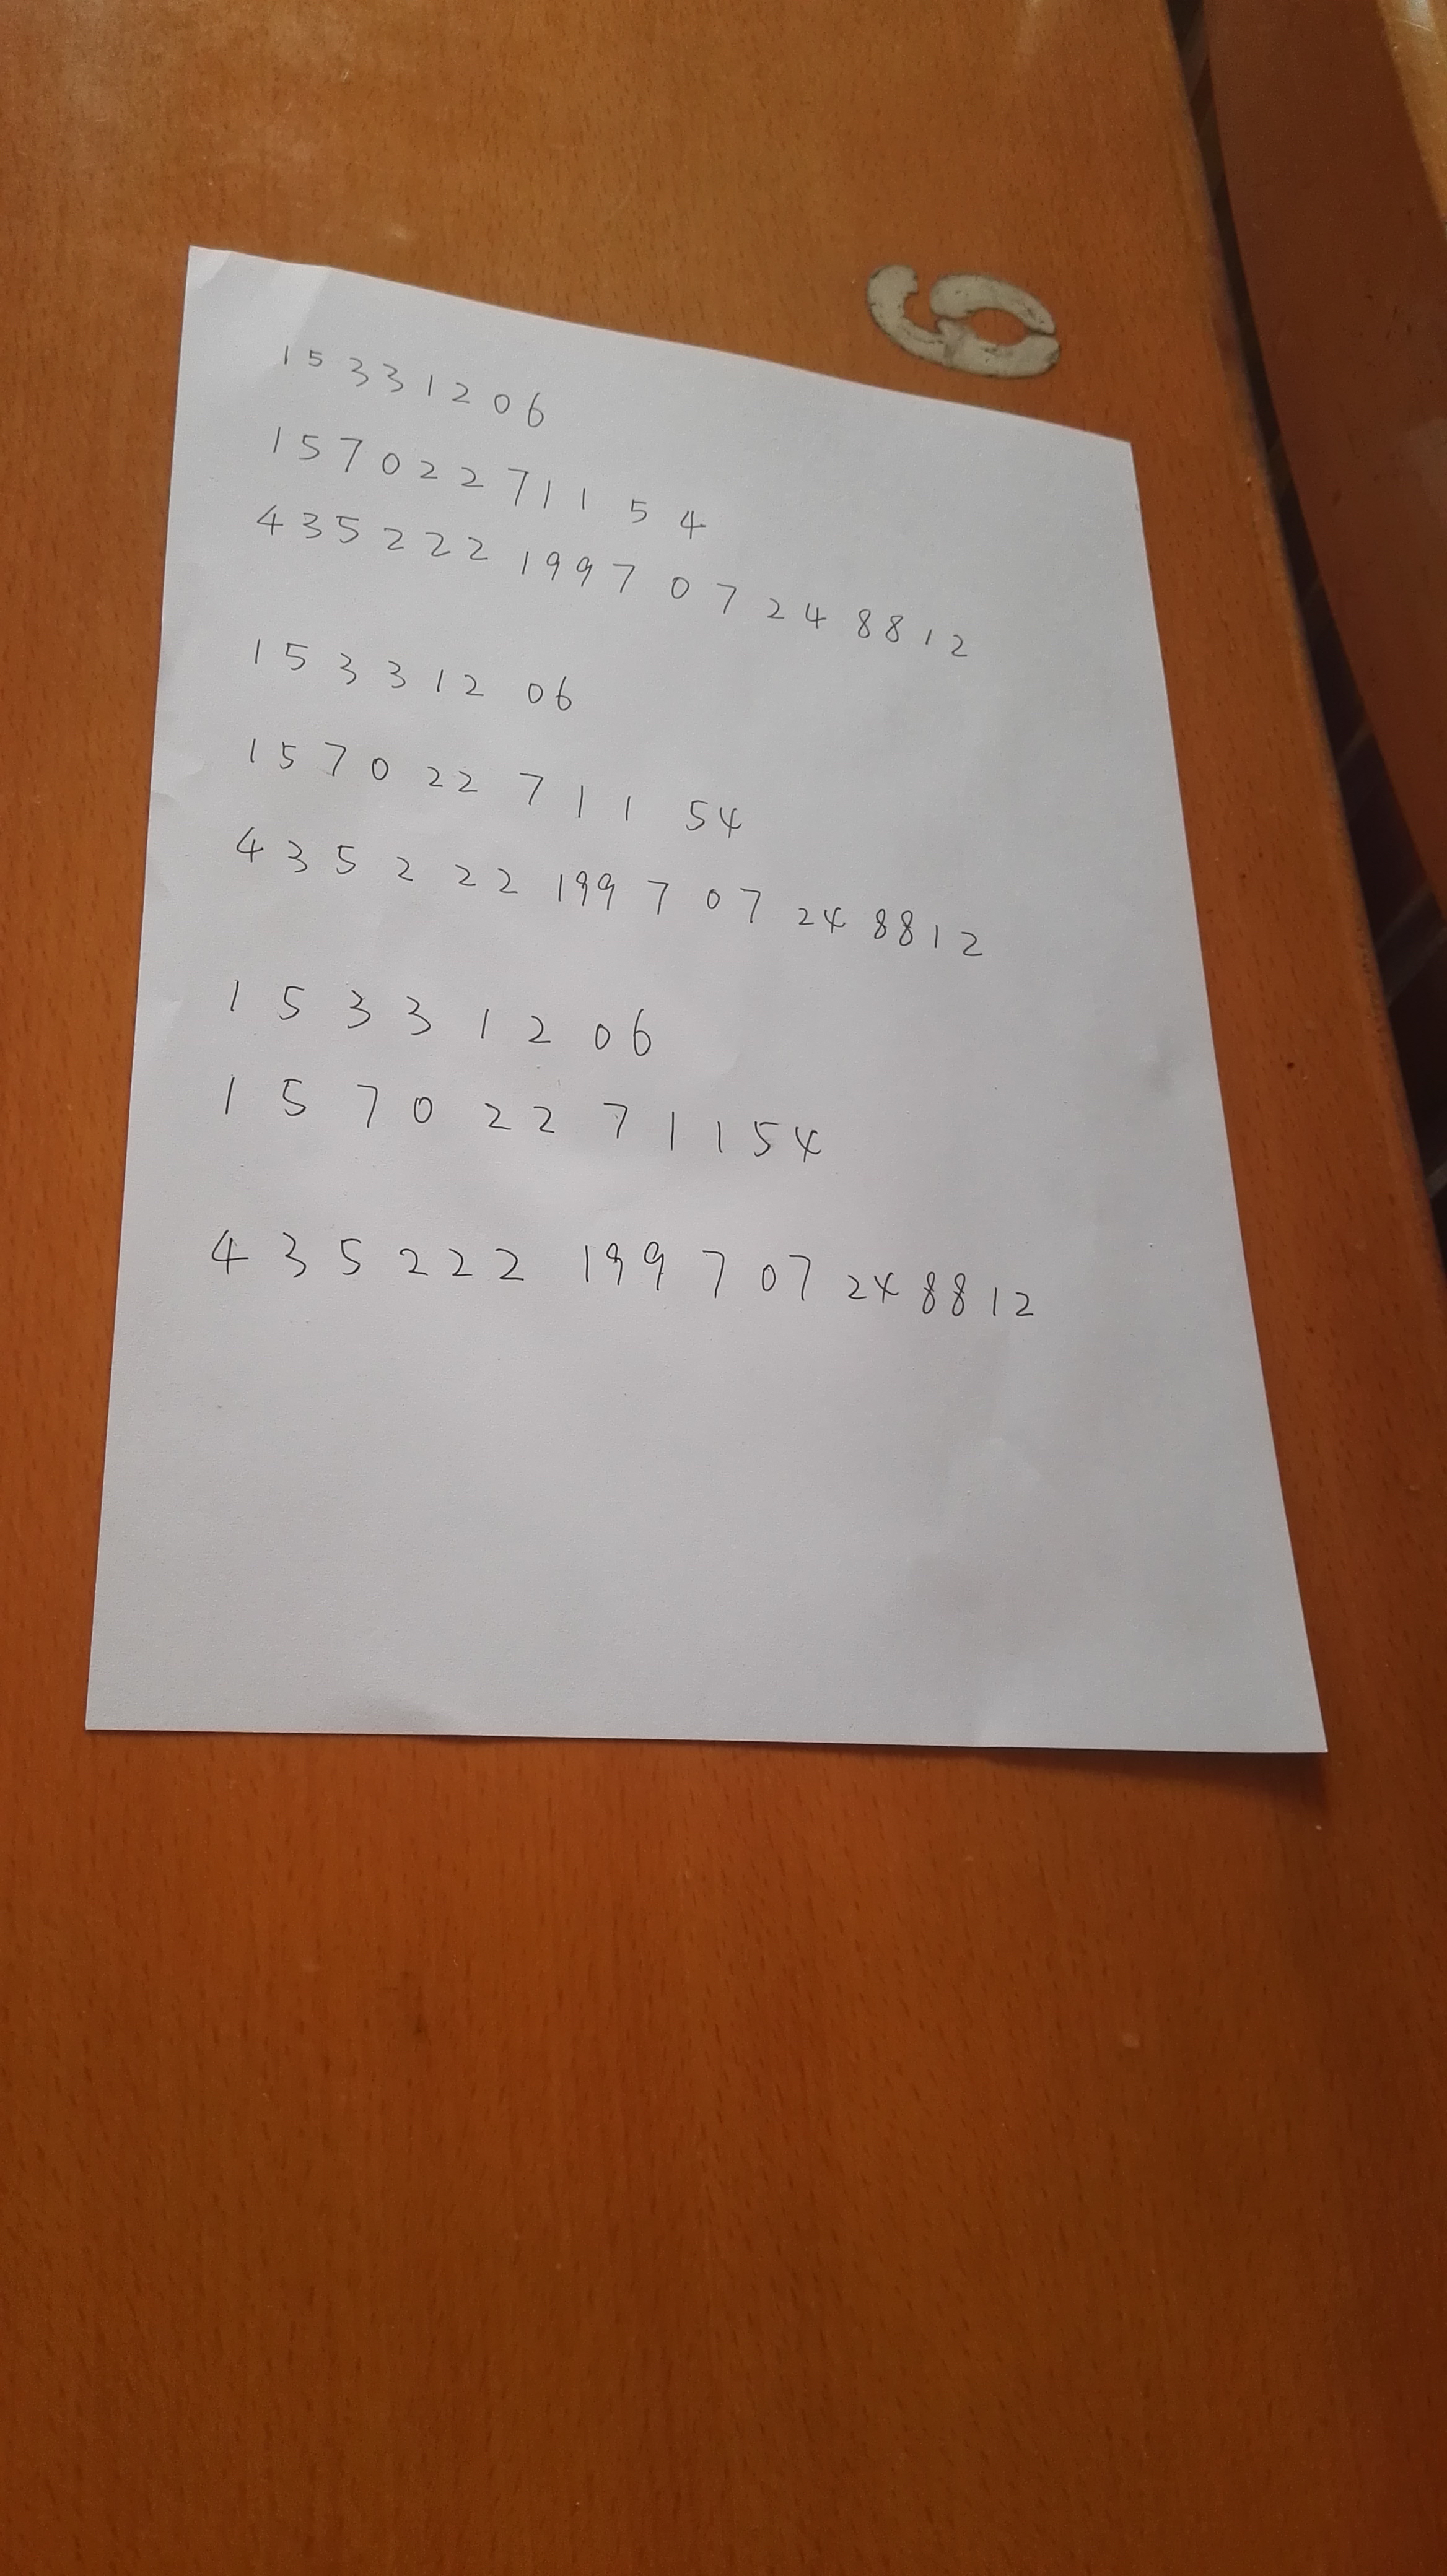 1 5 3 3 1 2 0 6
1 5 7 0 2 2 7 1 1 5 4
4 3 5 2 2 2 1 9 9 7 0 7 2 4 8 8 1 2
1 5 3 3 1 2 0 6
1 5 7 0 2 2 7 1 1 5 4
4 3 5 2 2 2 1 9 9 7 0 7 2 4 8 8 1 2
1 5 3 3 1 2 0 6
1 5 7 0 2 2 7 1 1 5 4
4 3 5 2 2 2 1 9 9 7 0 7 2 4 8 8 1 2